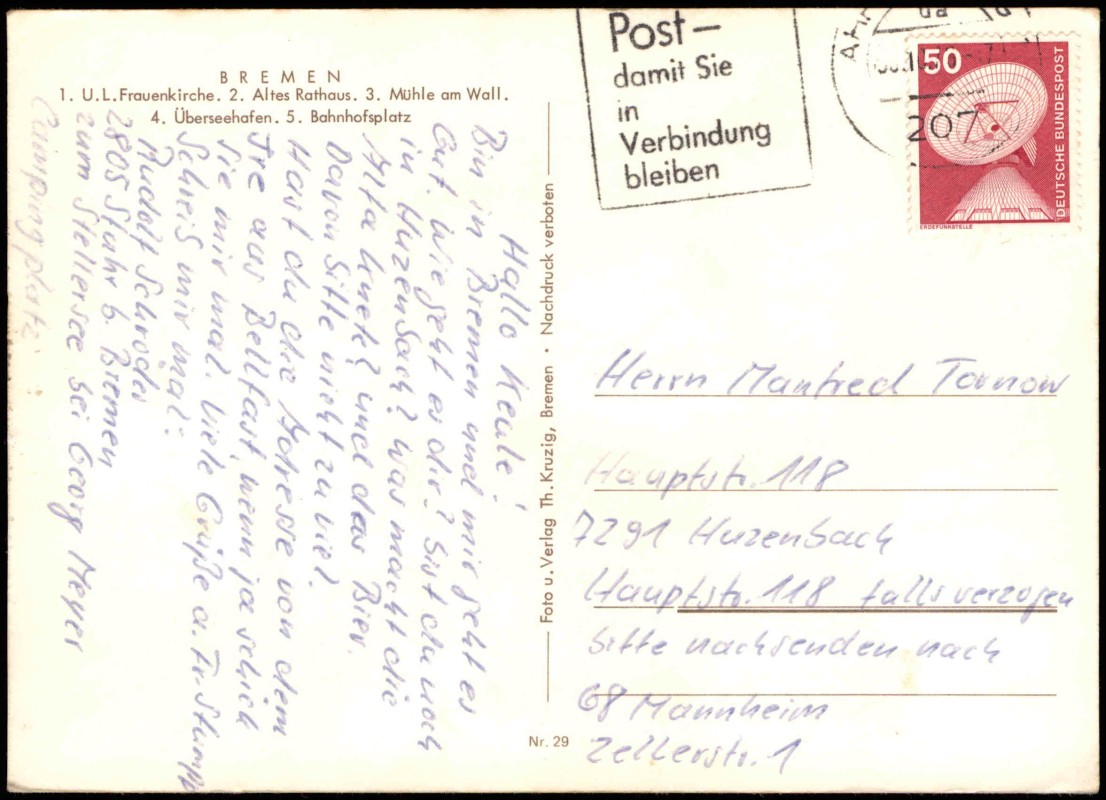 BREMEN
1. U.L.Frauenkirche. 2. Altes Rathaus. 3. Mühle am Wall.
4. Überseehafen. 5. Bahnhofsplatz
Hallo Keule!
Bin in Bremen und mir geht es
Gut. Wie geht es dir? Bist du noch
in Huzenbach? Was macht die
Alta und das Bier.
Davon bitte nicht zu viel.
Hast du die Adresse von dem
Ire aus Bellfast, wenn ja schick
Sie mir mal. Viele Grüße a.
Schreib mir mal:
Rudolf Schröder
2805 Stuhr b. Bremen
zum Stellersee bei Georg Meyer
Campingplatz
Foto u. Verlag Th. Kruzig, Bremen • Nachdruck verboten
Nr. 29
Post-
damit Sie
in
Verbindung
bleiben
207
50
DEUTSCHE BUNDESPOST
ERDEFUNKSTELLE
Herrn Manfred Tornow
Hauptstr. 118
7291 Huzenbach
Hauptstr. 118 falls verzogen
bitte nachsenden nach
68 Mannheim
Zellerstr. 1